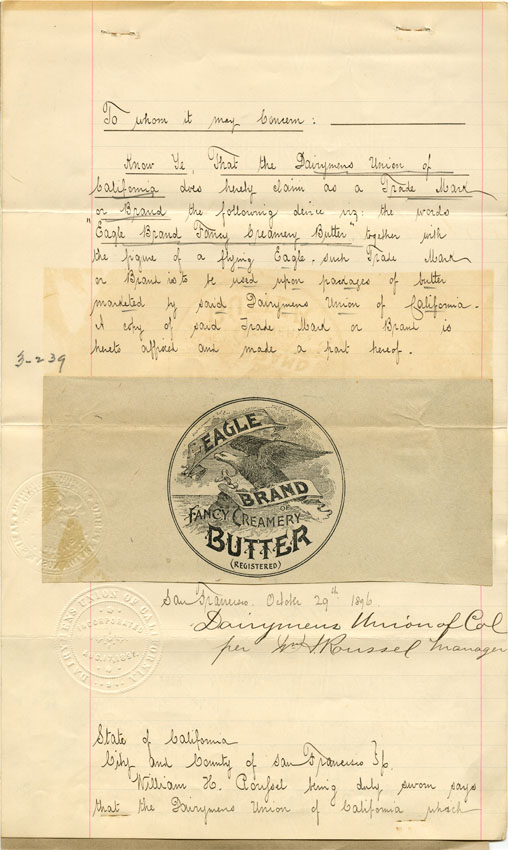 To whom it may Concern:
Know Ye, That the Dairymens Union of
California does hereby claim as a Trade Mark
or Brand the following device viz: the words
"Eagle Brand Fancy Creamery Butter" together with
the figure of a flying Eagle. such Trade Mark
or Brand is to be used upon packages of butter
marketed by said Dairymens Union of California.
A copy of said Trade Mark or Brand is
hereto affixed and made a part hereof.
3-239
EAGLE
BRAND
OF
FANCY CREAMERY
BUTTER
(REGISTERED)
San Francisco. October 29th 1896
Dairymens Union of Cal
per Wm H Roussel Manager
DAIRYMENS UNION OF CALIFORNIA
INCORPORATED
State of California
City and County of San Francisco
William H. Roussel being duly sworn says
that the Dairymens Union of California which